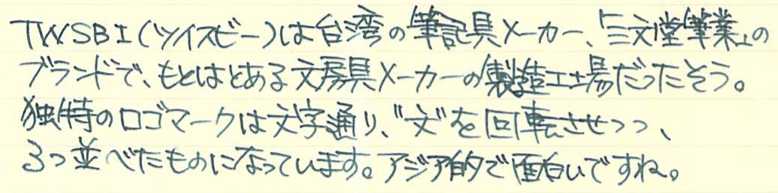 TWSBI(ツイスビー)は台湾の筆記具メーカー、「三文堂筆業」の
ブランドで、もとはとある文房具メーカーの製造工場だったそう。
独特のロゴマークは文字通り、"文"を回転させつつ、
3つ並べたものになっています。アジア的で面白いですね。